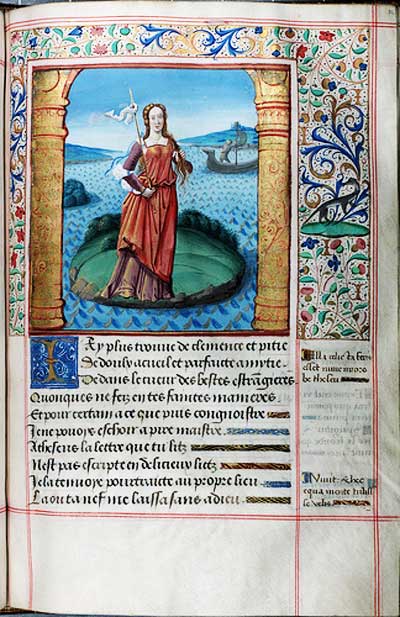 IAy plus trouue de clemence et pitie
De doulx acueil et parfaicte amytie
Dedans le cueur des bestes estrãgieres
Quonques ne fez en tes faintes manieres
Et pour certain a ce que puis congnoistre
Je ne pouoye escheoir a pire maistre
Atheseus la lettre que tu litz
Nest pas escripte en delicieux litz
Je la tenuoye pourtraicte au propre lieu
La ou ta nef me laissa sans adieu
Illa relicta feris
est et nunc inpro
be theseu
equa mente tulis
se velis